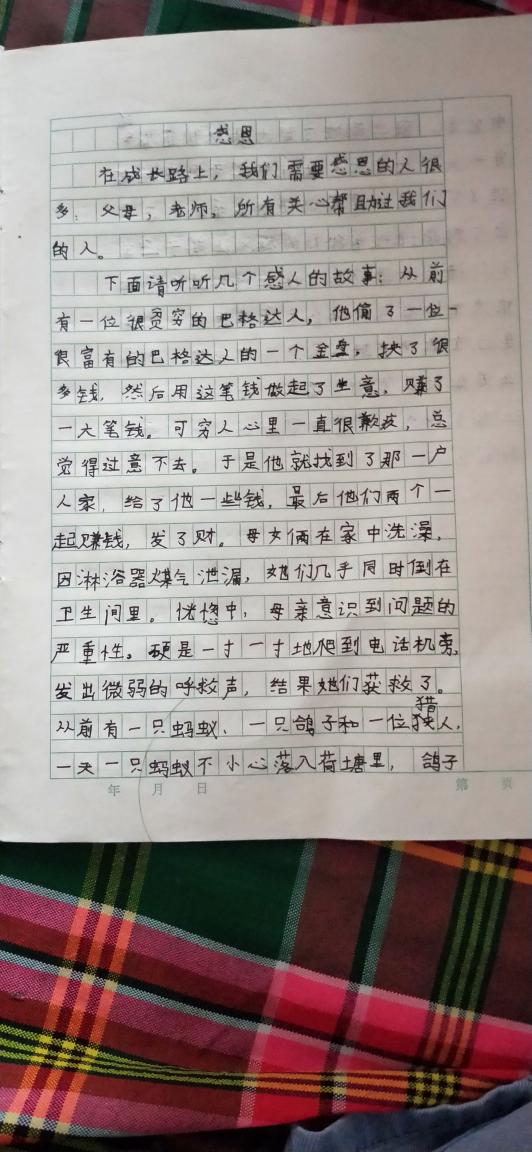 感恩
在成长路上，我们需要感恩的人很
多：父母，老师，所有关心帮助过我们
的人。
下面请听听几个感人的故事：从前
有一位很贫穷的巴格达人，他偷了一位
很富有的巴格达人的一个金盘，换了很
多钱，然后用这笔钱做起了生意，赚了
一大笔钱。可穷人心里一直很歉疚，总
觉得过意不去。于是他就找到了那一户
人家，给了他一些钱，最后他们两个一
起赚钱，发了财。母女俩在家中洗澡，
因淋浴器煤气泄漏，她们几乎同时倒在
卫生间里。恍惚中，母亲意识到问题的
严重性。硬是一寸一寸地爬到电话机旁，
发出微弱的呼救声，结果她们获救了。
从前有一只蚂蚁、一只鸽子和一位猎人，
一天一只蚂蚁不小心落入荷塘里，鸽子
年 月 日
第 页